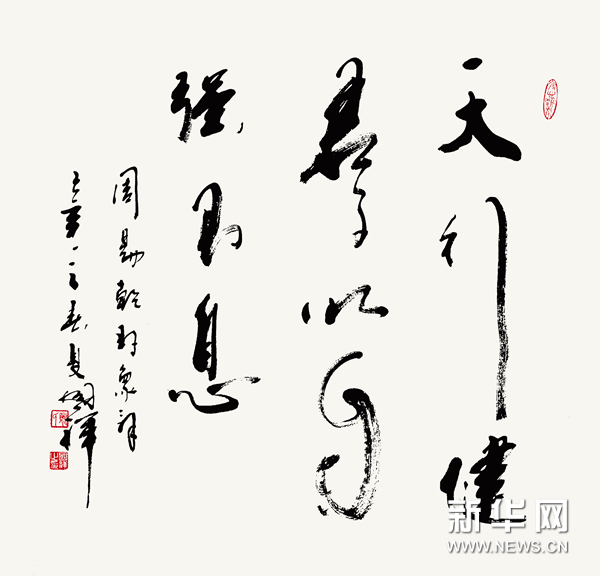 天行健
君子以自
强不息
周易乾卦象辞
新华网
WWW.NEWS.CN